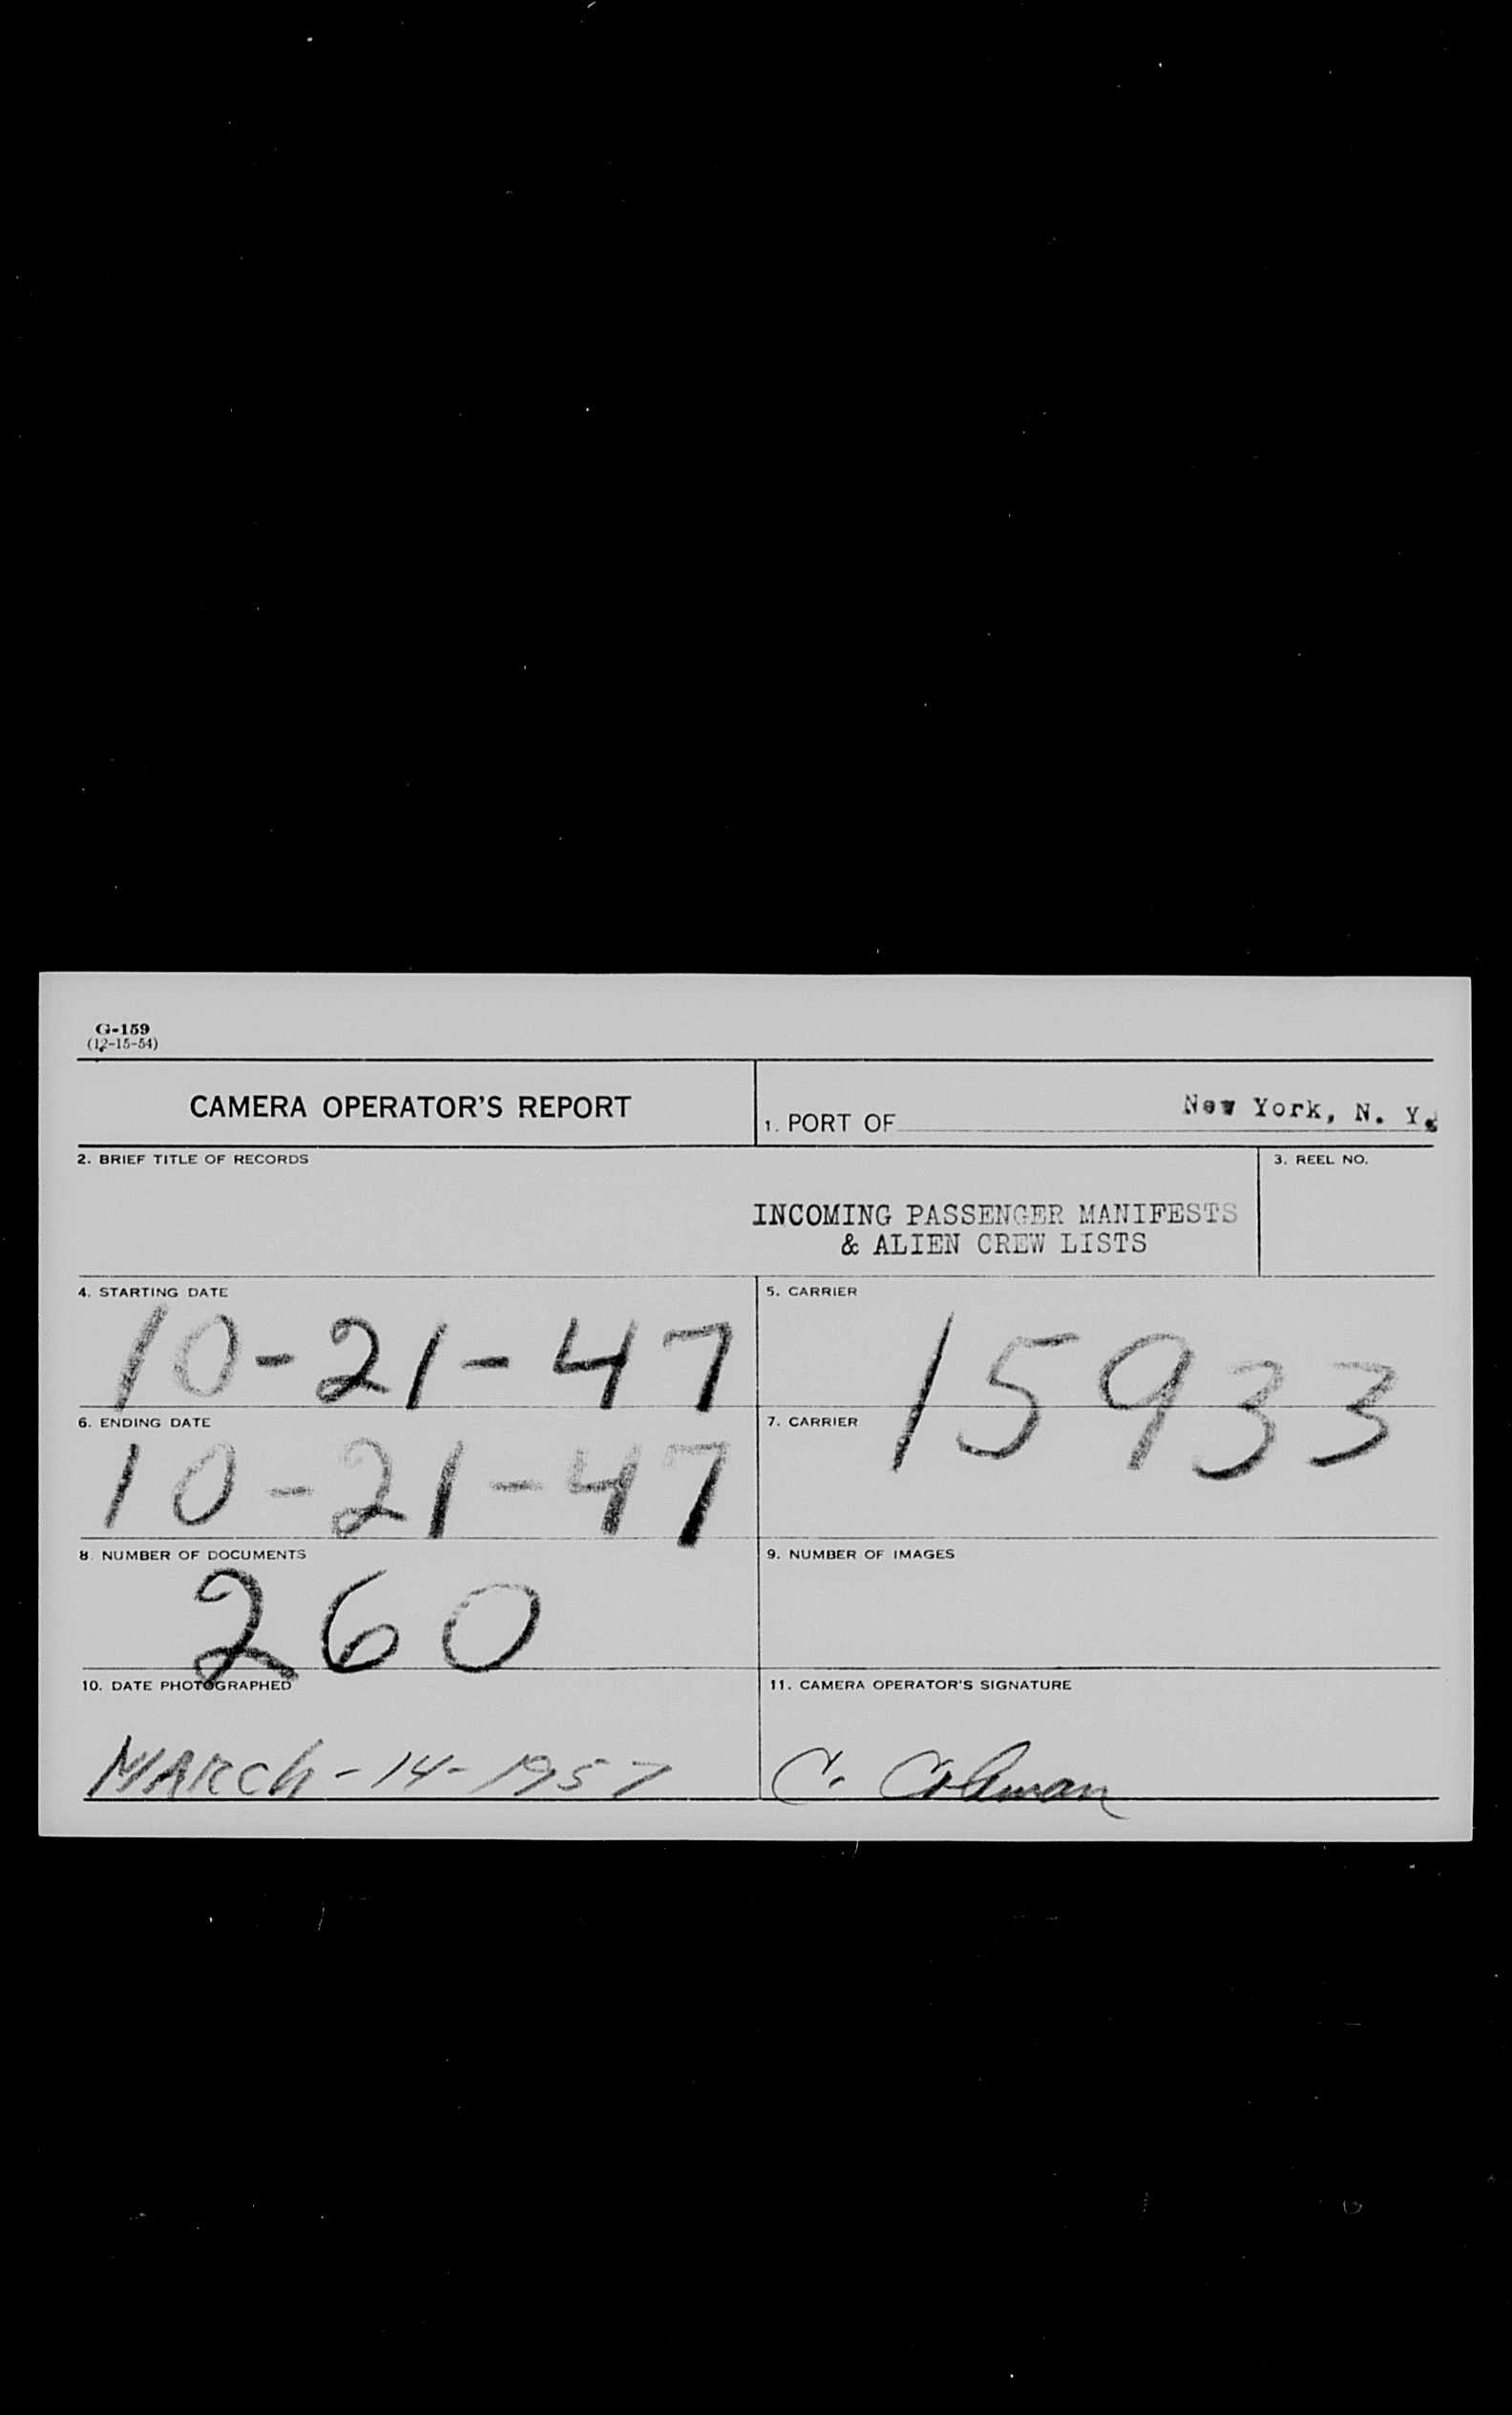 G-159
(12-15-54)
CAMERA OPERATOR'S REPORT
1. PORT OF New York, N. Y.
2. BRIEF TITLE OF RECORDS
3. REEL NO.
INCOMING PASSENGER MANIFESTS
& ALIEN CREW LISTS
4. STARTING DATE
10-21-47
5. CARRIER
15933
6. ENDING DATE
10-21-47
7. CARRIER
8. NUMBER OF DOCUMENTS
260
9. NUMBER OF IMAGES
10. DATE PHOTOGRAPHED
MARCh-14-1957
11. CAMERA OPERATOR'S SIGNATURE
C. Colman